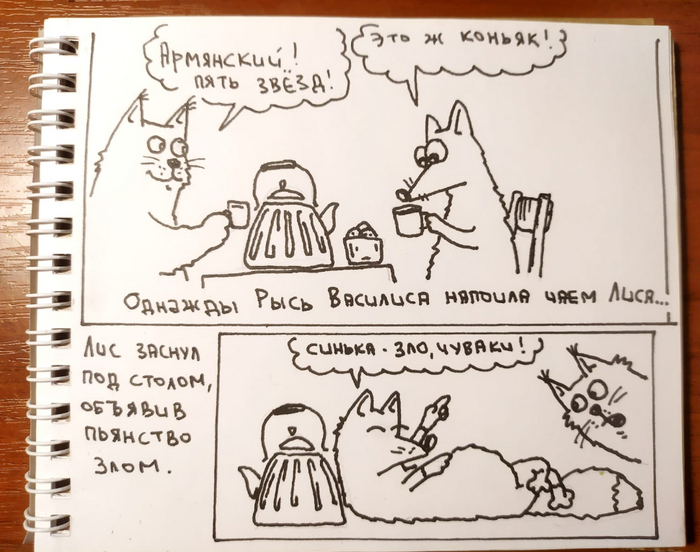 Это ж коньяк!
Армянский!
пять звёзд!
Однажды Рысь Василиса напоила чаем Лися...
Лис заснул
под столом,
объявив
пьянство
злом.
синька - зло, чуваки!